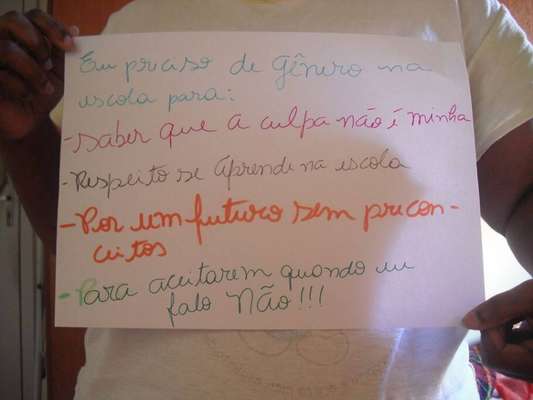 Eu preciso de Gênero na
escola para:
- Saber que a culpa não é minha
- Respeito se aprende na escola
- Por um futuro sem precon-
ceitos
- Para aceitarem quando eu
falo Não!!!